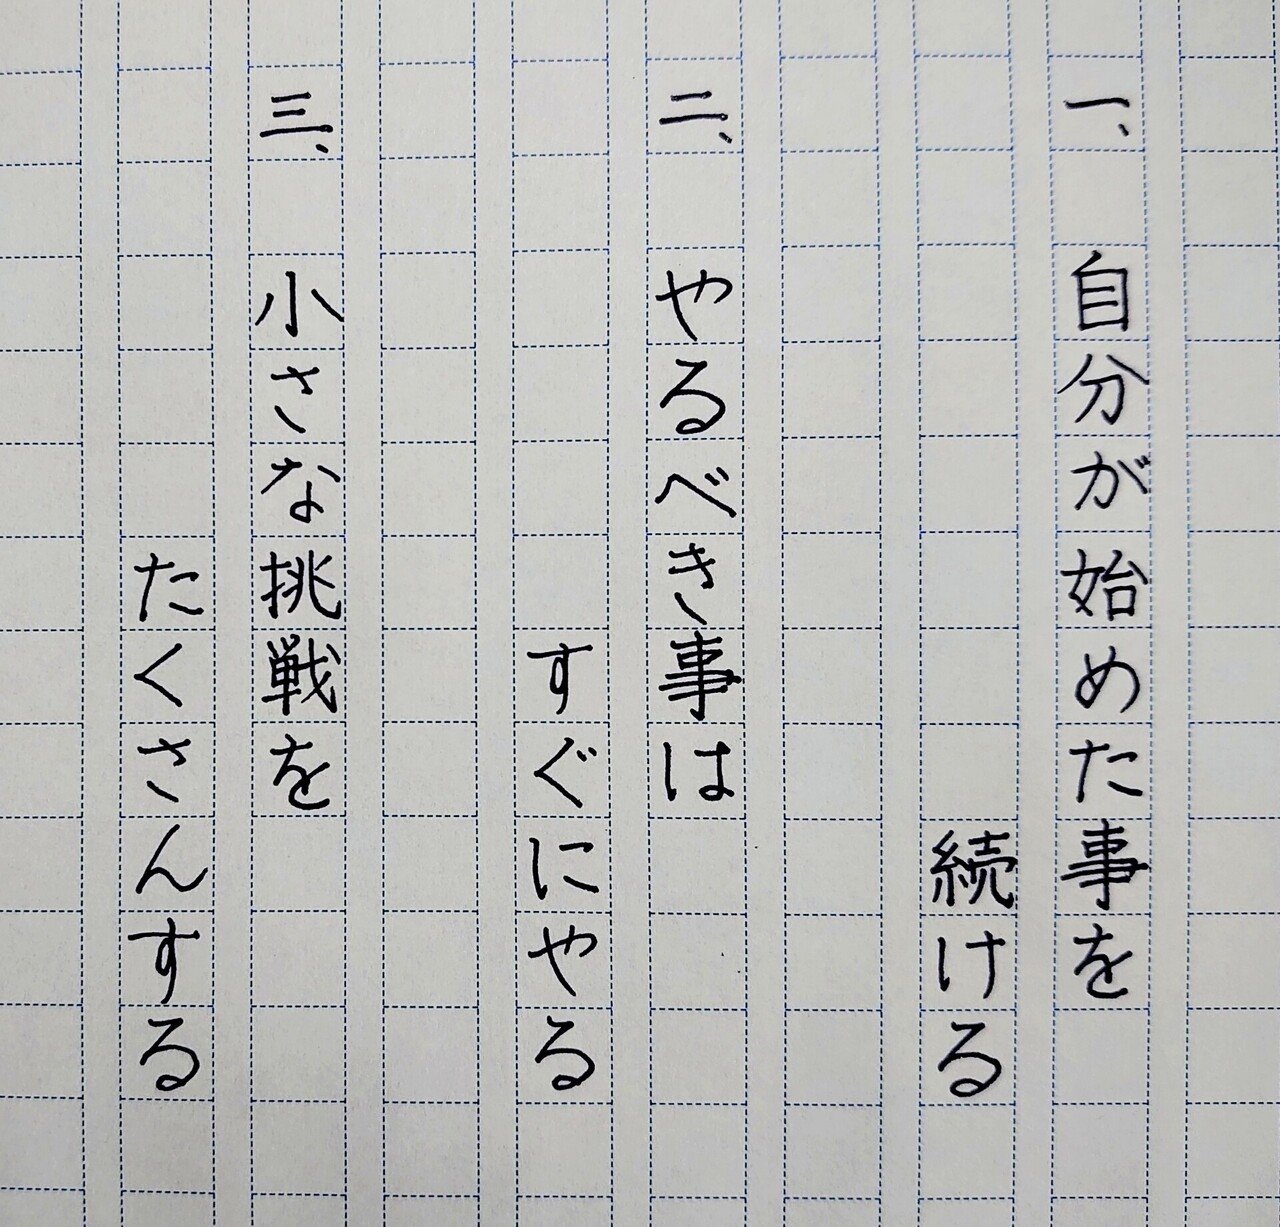 一、自分が始めた事を
続ける
二、やるべき事は
すぐにやる
三、小さな挑戦を
たくさんする